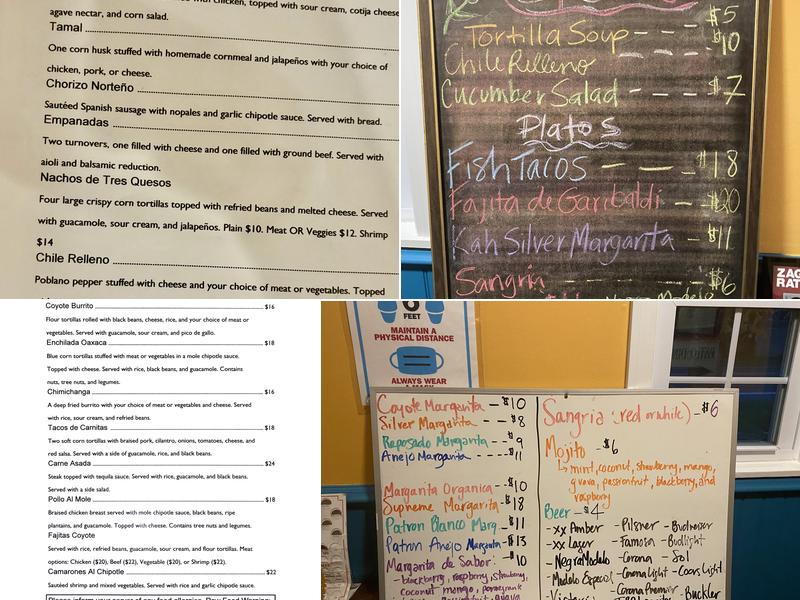 with chicken, topped with sour cream, cotija cheese
agave nectar, and corn salad.
Tamal
One corn husk stuffed with homemade cornmeal and jalapeños with your choice of
chicken, pork, or cheese.
Chorizo Norteño
Sautéed Spanish sausage with nopales and garlic chipotle sauce. Served with bread.
Empanadas
Two turnovers, one filled with cheese and one filled with ground beef. Served with
aioli and balsamic reduction.
Nachos de Tres Quesos
Four large crispy corn tortillas topped with refried beans and melted cheese. Served
with guacamole, sour cream, and jalapeños. Plain $10. Meat OR Veggies $12. Shrimp
$14
Chile Relleno
Poblano pepper stuffed with cheese and your choice of meat or vegetables. Topped
$5
Tortilla Soup - - - $10
Chile Relleno
Cucumber Salad - - - $7
Platos
Fish Tacos - - - $18
Fajita de Garibaldi - $20
Kah Silver Margarita - $11
Sangria - - - $6
ZAG
RAT
Coyote Burrito $16
Flour tortillas rolled with black beans, cheese, rice, and your choice of meat or
vegetables. Served with guacamole, sour cream, and pico de gallo.
Enchilada Oaxaca $18
Blue corn tortillas stuffed with meat or vegetables in a mole chipotle sauce.
Topped with cheese. Served with rice, black beans, and guacamole. Contains
nuts, tree nuts, and legumes.
Chimichanga $16
A deep fried burrito with your choice of meat or vegetables and cheese. Served
with rice, sour cream, and refried beans.
Tacos de Carnitas $18
Two soft corn tortillas with braised pork, cilantro, onions, tomatoes, cheese, and
red salsa. Served with a side of guacamole, rice, and black beans.
Carne Asada $24
Steak topped with tequila sauce. Served with rice, guacamole, and black beans.
Served with a side salad.
Pollo Al Mole $18
Braised chicken breast served with mole chipotle sauce, black beans, ripe
plantains, and guacamole. Topped with cheese. Contains tree nuts and legumes.
Fajitas Coyote
Served with rice, refried beans, guacamole, sour cream, and flour tortillas. Meat
options: Chicken ($20), Beef ($22), Vegetable ($20), or Shrimp ($22).
Camarones Al Chipotle $22
Sautéed shrimp and mixed vegetables. Served with rice and garlic chipotle sauce.
6
FEET
MAINTAIN A
PHYSICAL DISTANCE
ALWAYS WEAR
A MASK
Coyote Margarita - $10
Silver Margarita - $8
Reposado Margarita - $9
Anejo Margarita - - - $11
Margarita Organica - $10
Supreme Margarita - $18
Patron Blanco Marg - $11
Patron Anejo Margarita - $13
Margarita de Sabor: $10
- blackberry, raspberry, strawberry,
coconut, mango, pomegranate
Sangria (red or white) - $6
Mojito - $6
mint, coconut, strawberry, mango,
guava, passionfruit, blackberry, and
raspberry
Beer - $4
- xx Amber - Pilsner - Budweiser
- xx Lager - Famosa - Budlight
- Negra Modelo - Corona - Sol
- Modelo Especial - Corona Light - Coors Light
- Victoria - Corona Premier - Buckler